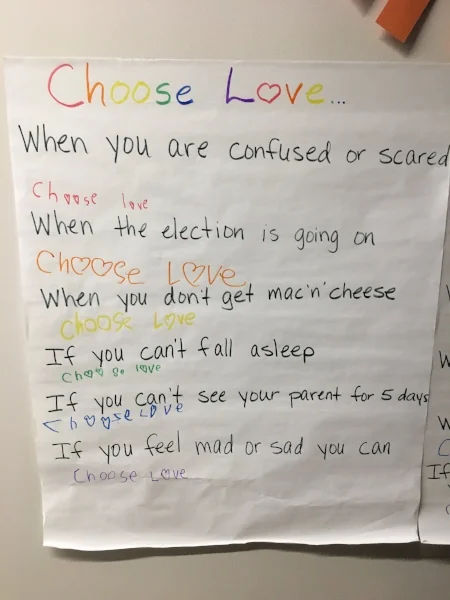 Choose Love...
When you are confused or scared
Choose love
When the election is going on
Choose Love
When you don't get mac'n'cheese
Choose Love
If you can't fall asleep
Choose love
If you can't see your parent for 5 days
Choose Love
If you feel mad or sad you can
Choose Love
W
W
If